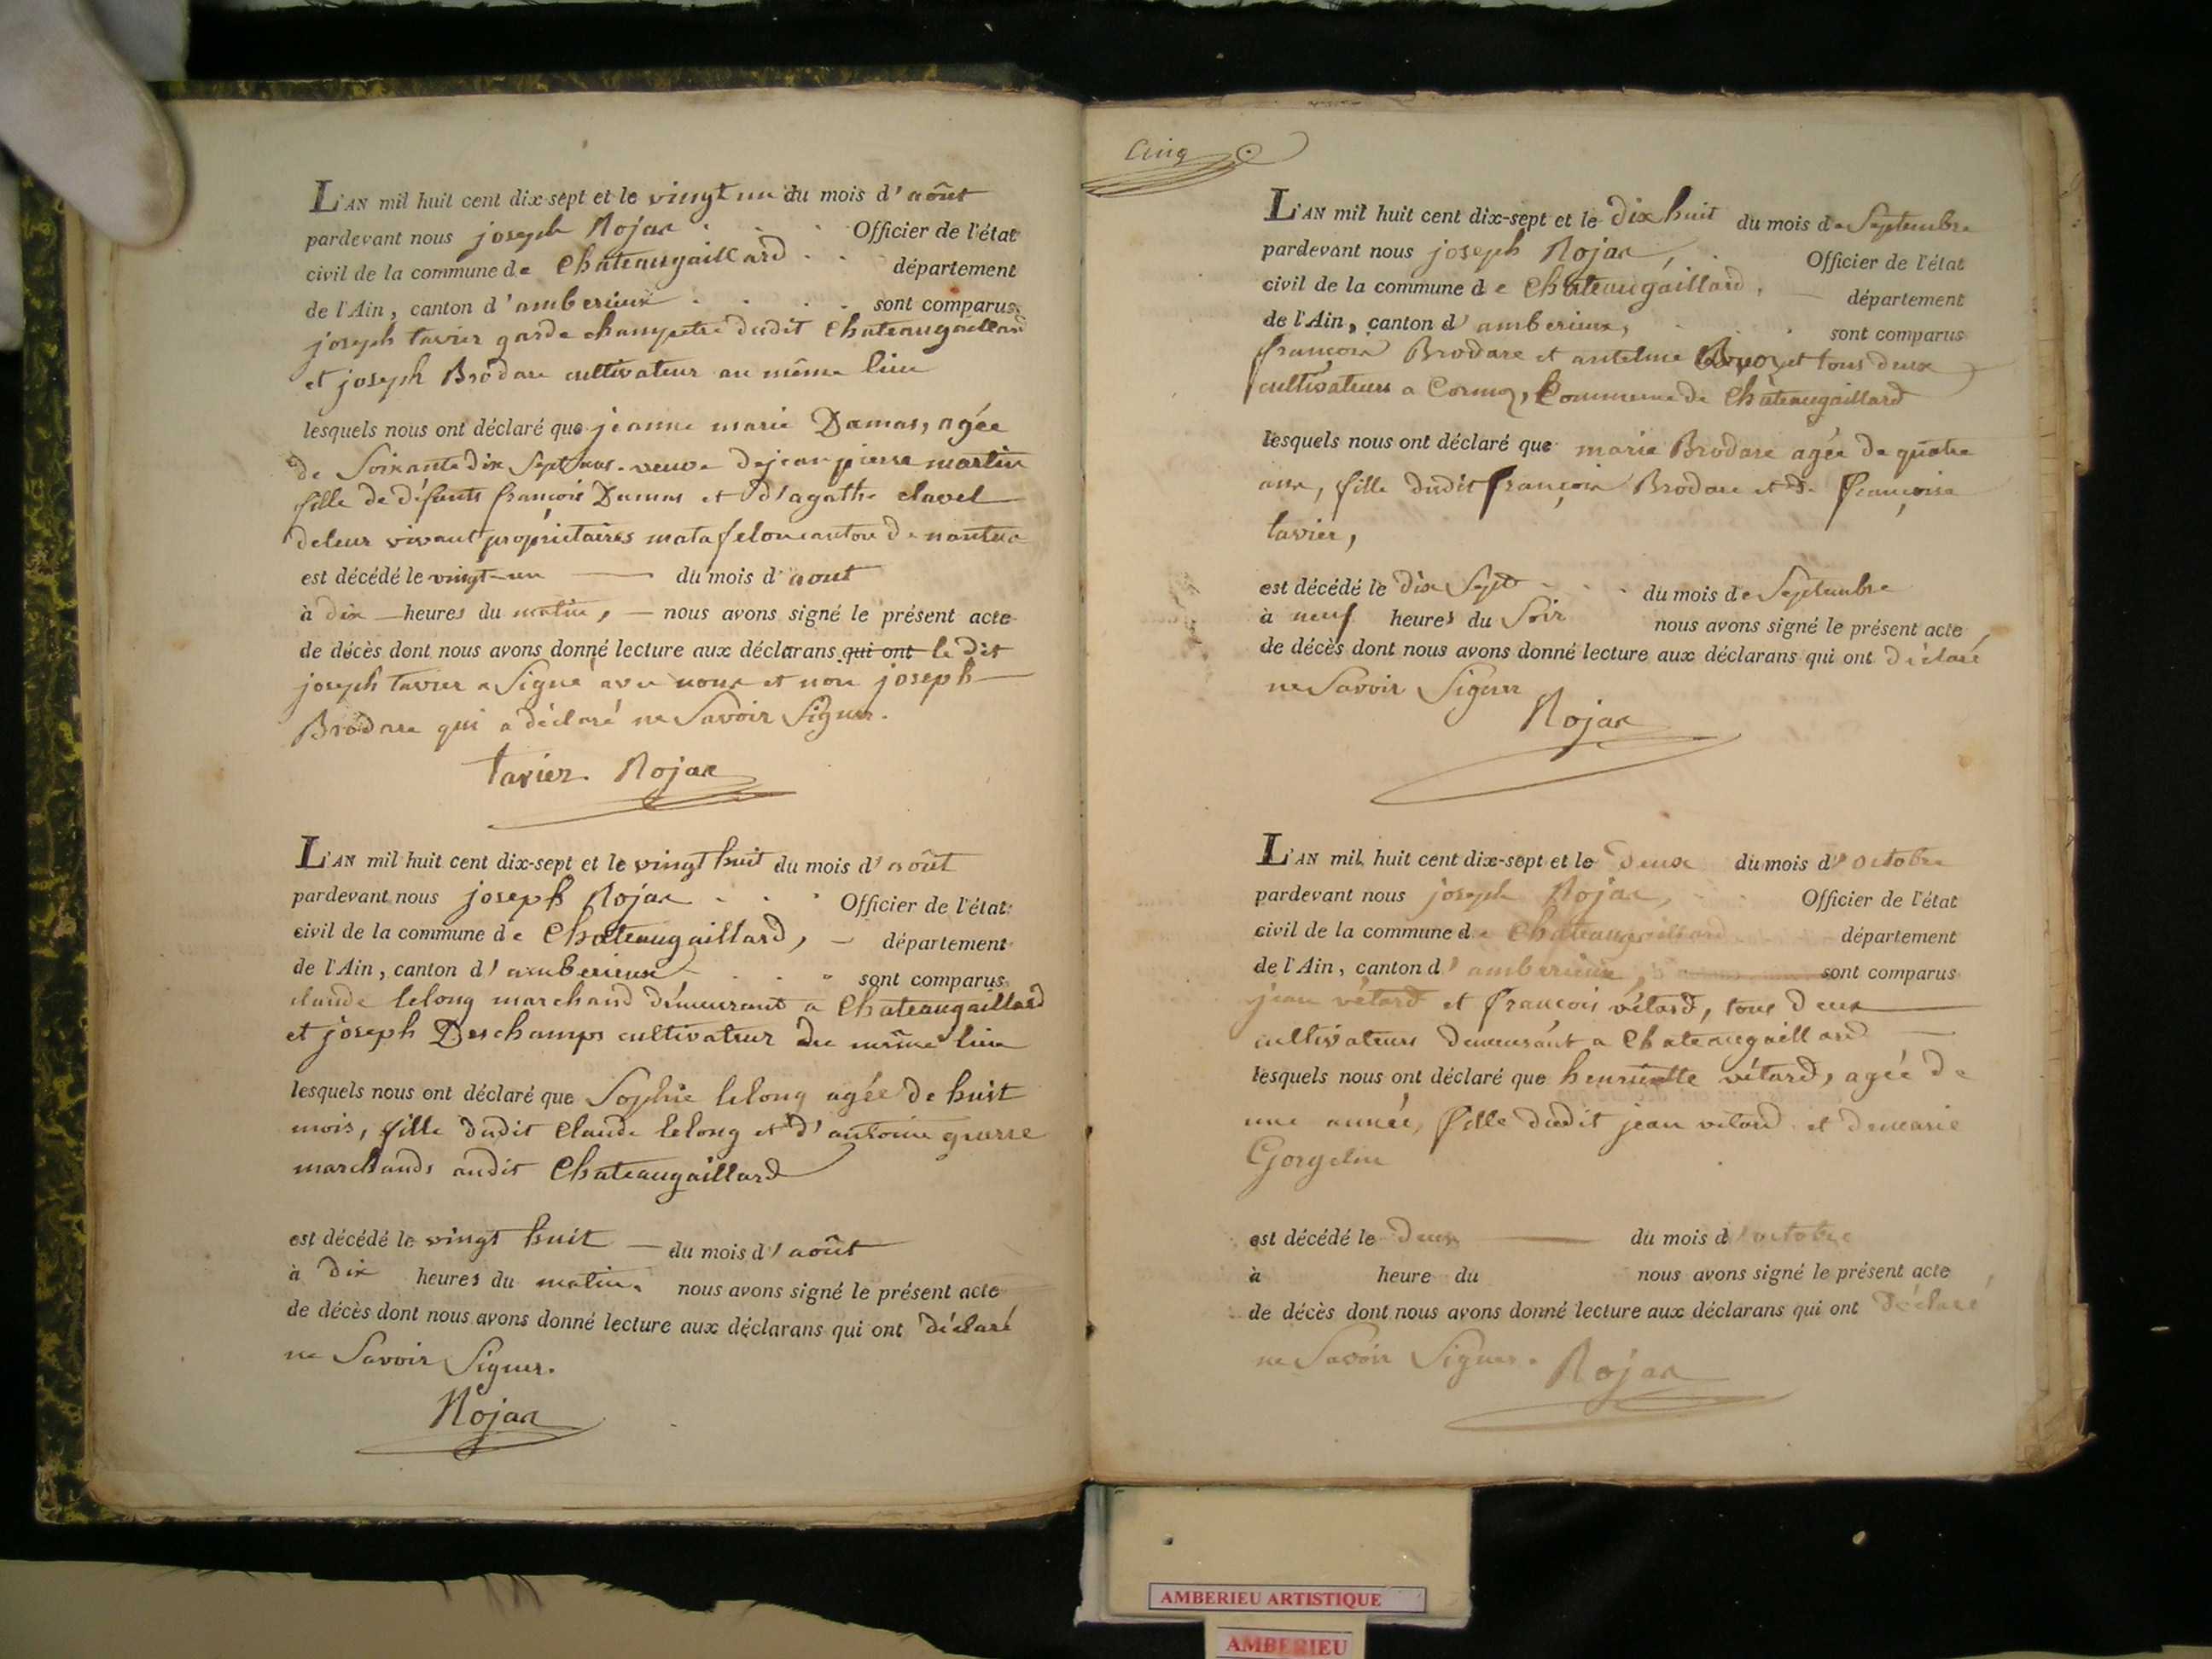 L'AN mil huit cent dix-sept et le vingt un du mois d'août
pardevant nous joseph Rojar Officier de l'état
civil de la commune de Chateaugaillard département
de l'Ain, canton d'amberieux sont comparus
joseph tavier garde champetre dudit Chateaugaillard
et joseph Brodare cultivateur au même lieu
lesquels nous ont déclaré que jeanne marie Damas, agée
de Soixante dix Sept ans. veuve de jean pierre martin
fille de défunts françois Damas et d'agathe clavel
de leur vivant propriétaires matafelon canton de nantua
est décédé le vingt-un du mois d'aout
à dix heures du matin, nous avons signé le présent acte
de décès dont nous avons donné lecture aux déclarans qui ont le dit
joseph tavier a Signé avec nous et non joseph
Brodare qui a déclaré ne Savoir Signer.
tavier. Rojar
L'AN mil huit cent dix-sept et le vingt huit du mois d'août
pardevant nous joseph Rojar Officier de l'état
civil de la commune de Chateaugaillard, département
de l'Ain, canton d'amberieux sont comparus
claude lelong marchand démeurant a Chateaugaillard
et joseph Deschamps cultivateur du même lieu
lesquels nous ont déclaré que Sophie lelong agée de huit
mois, fille dudit Claude lelong et d'antoine
marchands audit Chateaugaillard
est décédé le vingt huit du mois d'août
à dix heures du matin. nous avons signé le présent acte
de décès dont nous avons donné lecture aux déclarans qui ont déclaré
ne Savoir Signer.
Rojar
Cinq
L'AN mil huit cent dix-sept et le dix huit du mois de Septembre
pardevant nous joseph Rojar, Officier de l'état
civil de la commune de Chateaugaillard, département
de l'Ain, canton d'amberieux, sont comparus
françois Brodare et antelme et tous deux
cultivateurs a Cormoz, Commune de Chateaugaillard
lesquels nous ont déclaré que marie Brodare agée de quatre
ans, fille dudit françois Brodare et de françoise
tavier,
est décédé le dix Sept du mois de Septembre
à neuf heures du Soir nous avons signé le présent acte
de décès dont nous avons donné lecture aux déclarans qui ont déclaré
ne Savoir Signer
Rojar
L'AN mil huit cent dix-sept et le deux du mois d'octobre
pardevant nous joseph Rojar, Officier de l'état
civil de la commune de Chateaugaillard département
de l'Ain, canton d'amberieux, sont comparus
jean vétard et françois vétard, tous deux
cultivateurs demeurant a Chateaugaillard
lesquels nous ont déclaré que henriette vétard, agée de
une année, fille dudit jean vetard et de marie
Gorgelin
est décédé le deux du mois d'octobre
à heure du nous avons signé le présent acte
de décès dont nous avons donné lecture aux déclarans qui ont déclaré
ne Savoir Signer. Rojar
AMBERIEU ARTISTIQUE
AMBERIEU